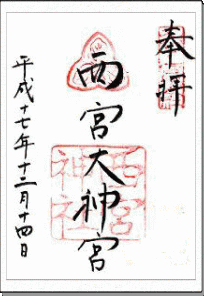 奉拝
西宮大神宮
西宮
神社
平成十七年十二月十四日